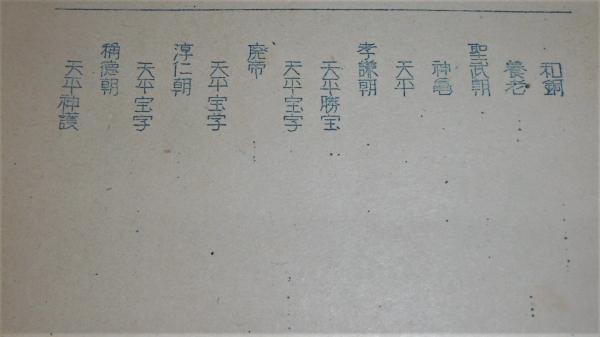 和銅
養老
聖武朝
神亀
天平
孝謙朝
天平勝宝
天平宝字
廃帝
天平宝字
淳仁朝
天平宝字
稱徳朝
天平神護